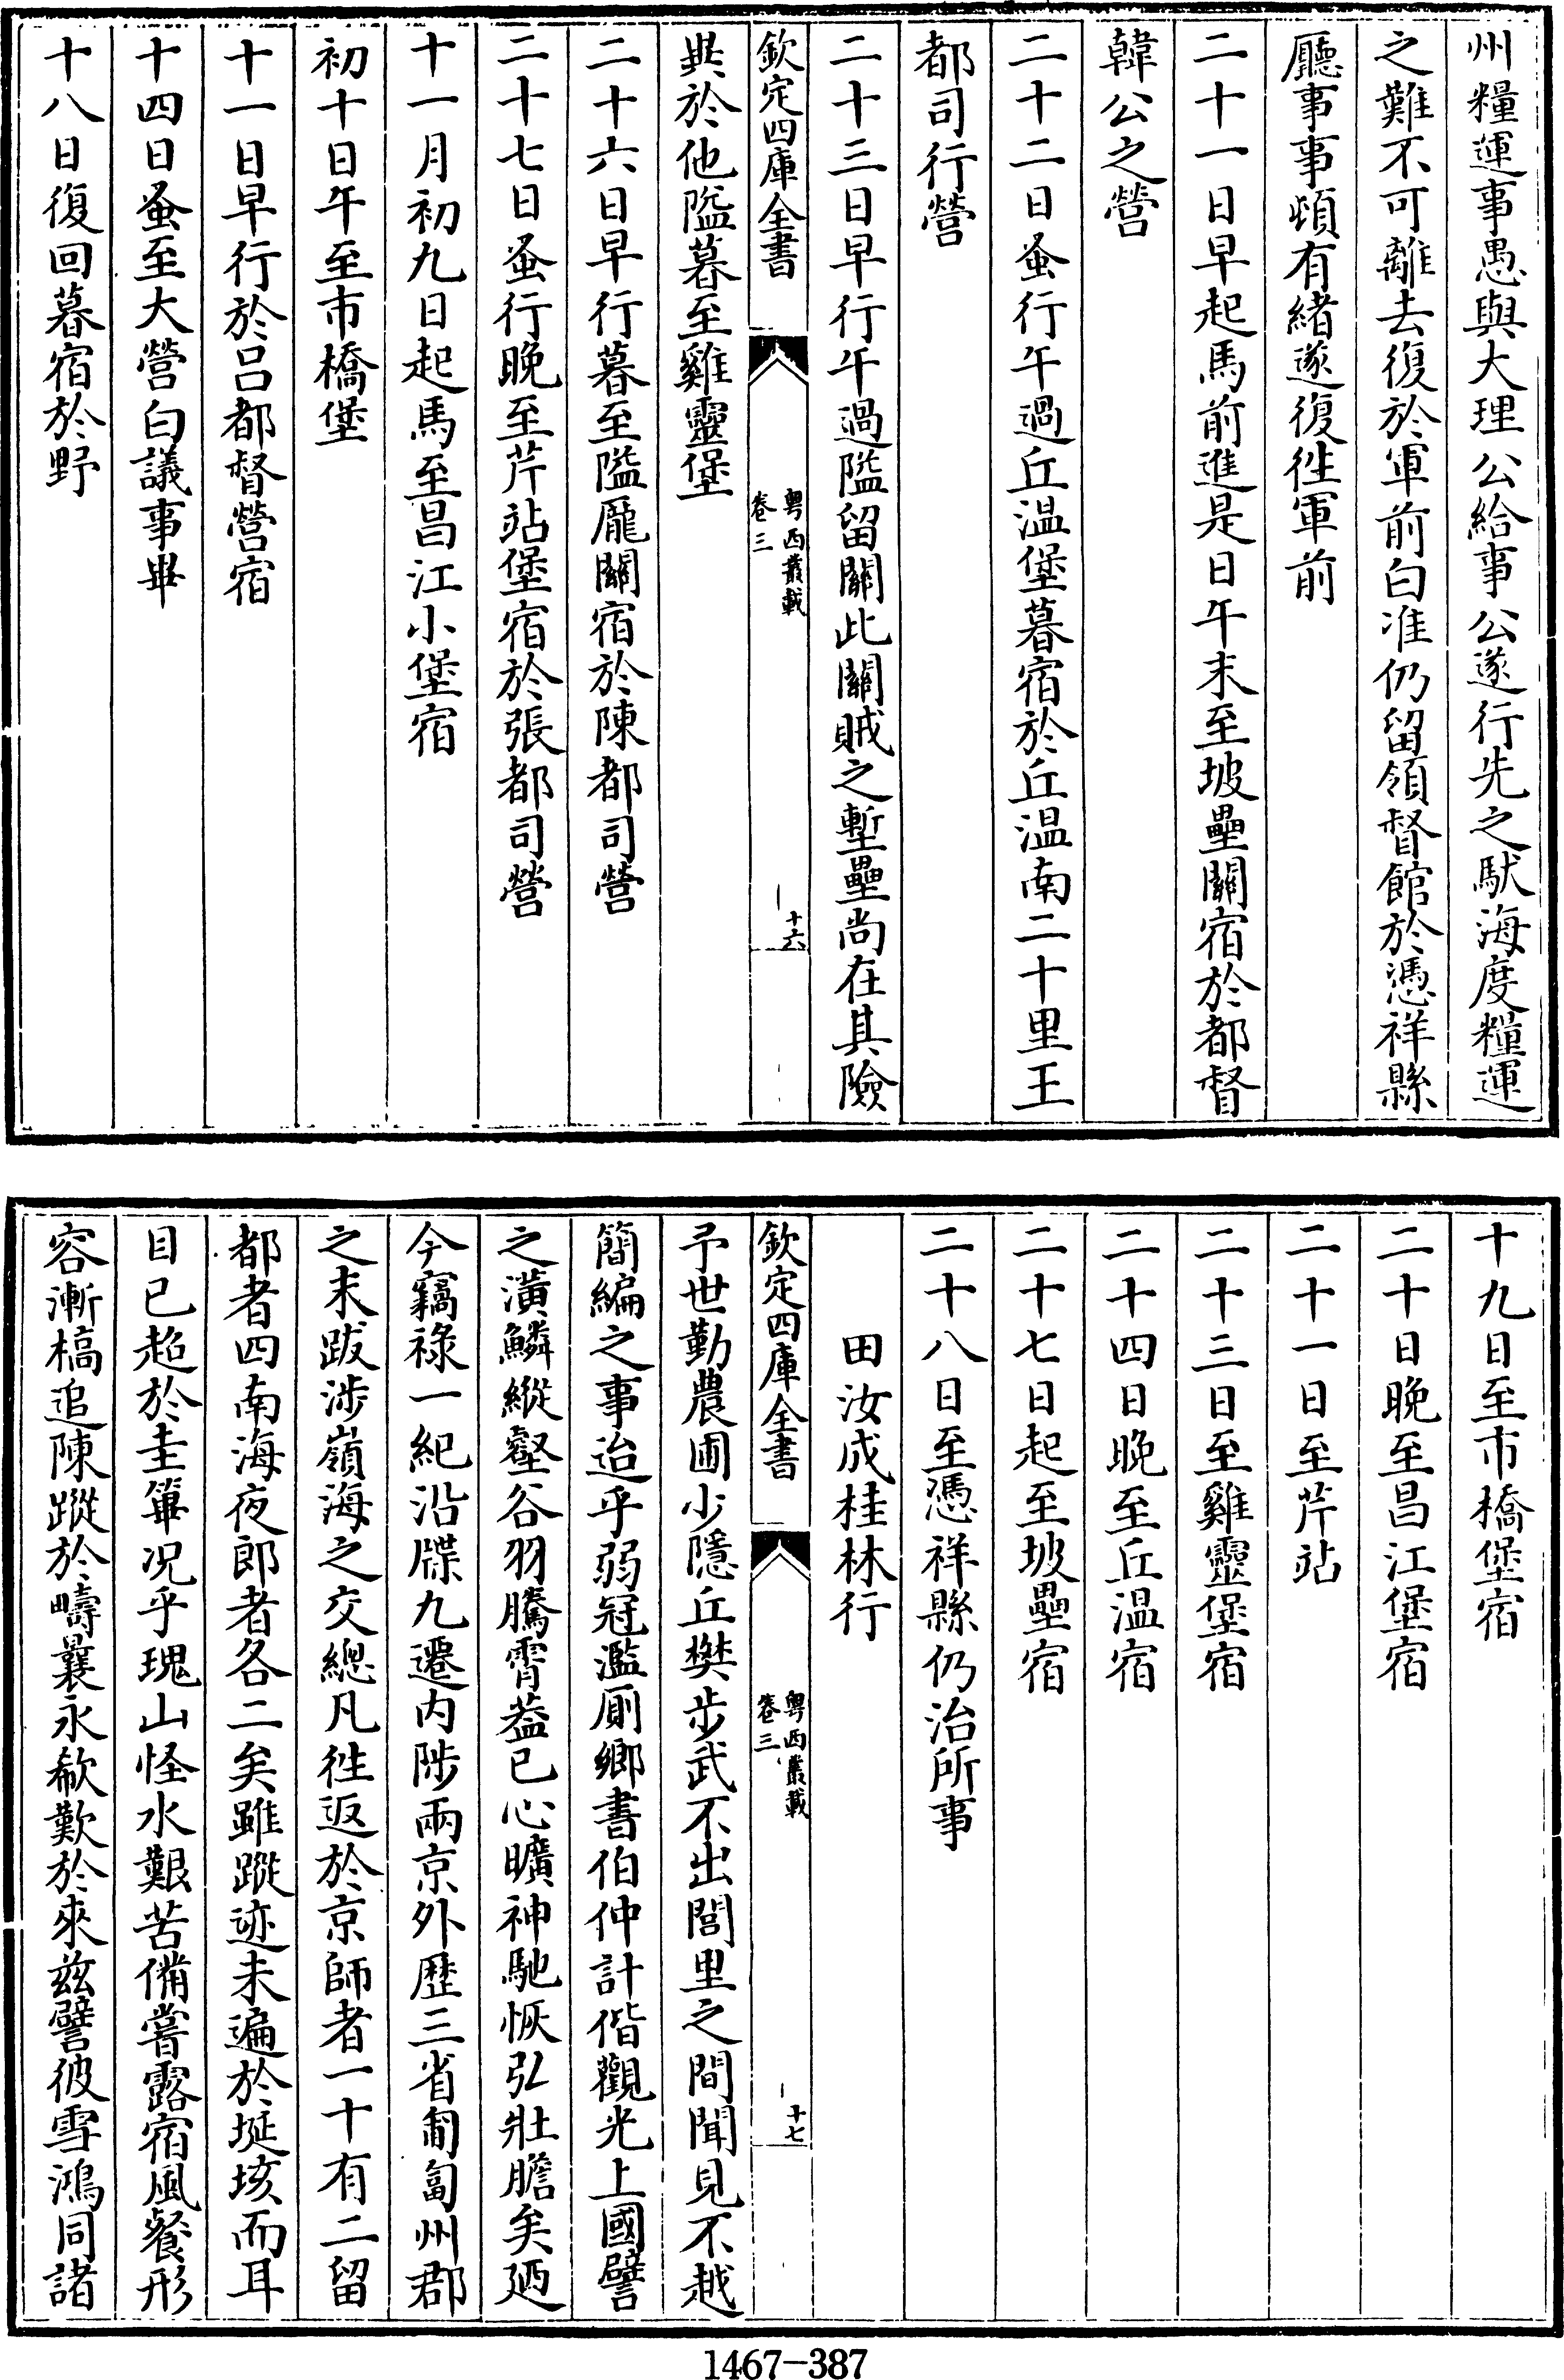 州糧運事愚與大理公給事公遂行先之馱海度糧運
之難不可離去復於軍前白准仍留領督館於憑祥縣
廳事事頓有緒遂復徃軍前
二十一日早起馬前進是日午末至坡壘關宿於都督
韓公之營
二十二日蚤行午過丘温堡暮宿於丘温南二十里王
都司行營
二十三日早行午過隘留關此關賊之塹壘尚在其險
欽定四庫全書
粤西叢載
卷三
十六
異於他隘暮至雞靈堡
二十六日早行暮至隘厖關宿於陳都司營
二十七日蚤行晚至芹站堡宿於張都司營
十一月初九日起馬至昌江小堡宿
初十日午至市橋堡
十一日早行於吕都督營宿
十四日蚤至大營白議事畢
十八日復回暮宿於野
十九日至市橋堡宿
二十日晚至昌江堡宿
二十一日至芹站
二十三日至雞靈堡宿
二十四日晚至丘温宿
二十七日起至坡壘宿
二十八日至憑祥縣仍治所事
田汝成桂林行
欽定四庫全書
粤西叢載
卷三
十七
予世勤農圃少隱丘樊步武不出閭里之間聞見不越
簡編之事迨乎弱冠濫厠鄉書伯仲計偕觀光上國譬
之潢鱗縱壑谷羽騰霄葢已心曠神馳恢弘壯膽矣廼
今竊祿一紀沿牒九遷内陟兩京外歷三省匍匐州郡
之末跋涉嶺海之交總凡徃返於京師者一十有二留
都者四南海夜郎者各二矣雖蹤迹未遍於埏垓而耳
目已超於圭篳况乎瑰山怪水艱苦備嘗露宿風餐形
容漸槁追陳蹤於疇曩永欷歎於來兹譬彼雪鴻同諸
1467-387